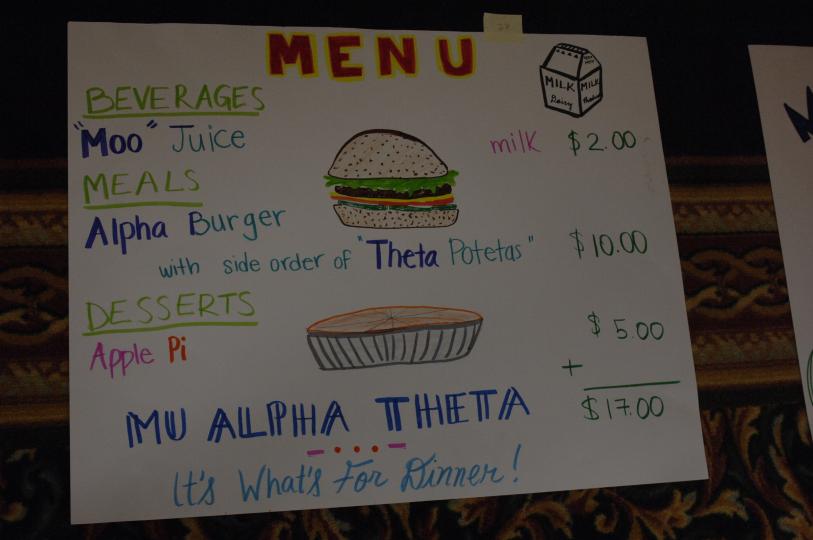 MENU
BEVERAGES
"Moo" Juice milk $2.00
MILK MILK
Dairy
MEALS
Alpha Burger
with side order of "Theta Potetas" $10.00
DESSERTS
Apple Pi $5.00
+
$17.00
MU ALPHA THETA
It's What's For Dinner!